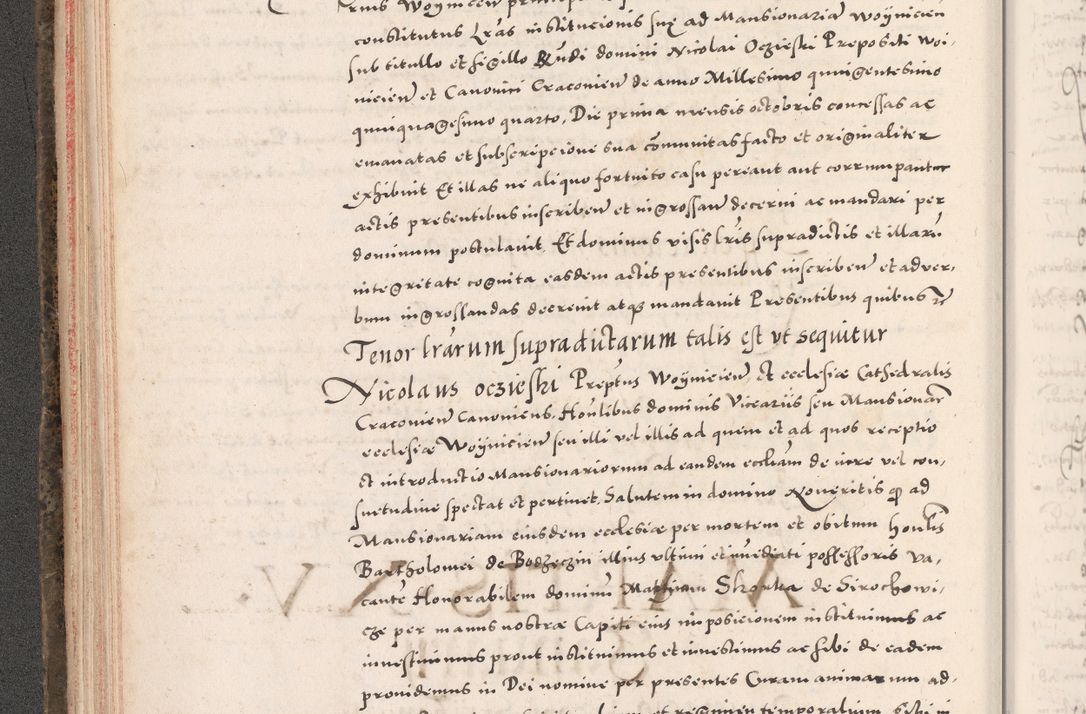 constitutus Lras institucionis suę ad Mansionariā Woynicien
sub titullo et sigillo Rndi domini Nicolai Oczieski Prepositi Woi,
nicien et Canonici Cracovien de anno Millesimo quingentesimo
quinquagesimo quarto, Die prima mensis octobris concessas ac
emanatas et subscripcione sua cōmunitas facto et originaliter
exhibuit Et illas ne aliquo fortuito casu pereant aut corrumpantur
actis presentibus inscriben et ingrossan decerni ac mandari per
dominum postulavit Et dominus visis lris supradictis et illarū
integritate cognita easdem actis presentibus inscriben et ad ver,
bum ingrossandas decrevit atqz mandavit Presentibus quibus
Tenor lrarum supradictarum talis est ut sequitur
Nicolaus oczieski Preptus Woynicien, et ecclesiæ Cathedralis
Cracovien Canonicus, Honlibus dominis Vicariis seu Mansionar
ecclesiæ Woynicien seu illi vel illis ad quem et ad quos receptio
et introductio Mansionariorum ad eandem eccliam de iure vel con,
suetudine spectat et pertinet. Salutem in domino Noveritis q ad
Mansionariam eiusdem ecclesiæ per mortem et obitum honlis
Bartholomei de Bodzeczin illius ultimi et imediati possessoris va,
cante Honorabilem dominū Martinum Skorka de Sirochowi,
cze per manus nostræ Capiti eius impositionem instituimus ac
investimus prout instituimus et investimus ac sibi de eadem
providemus in Dei nomine per presentes Curam animarum ad,
et regimen temporalium